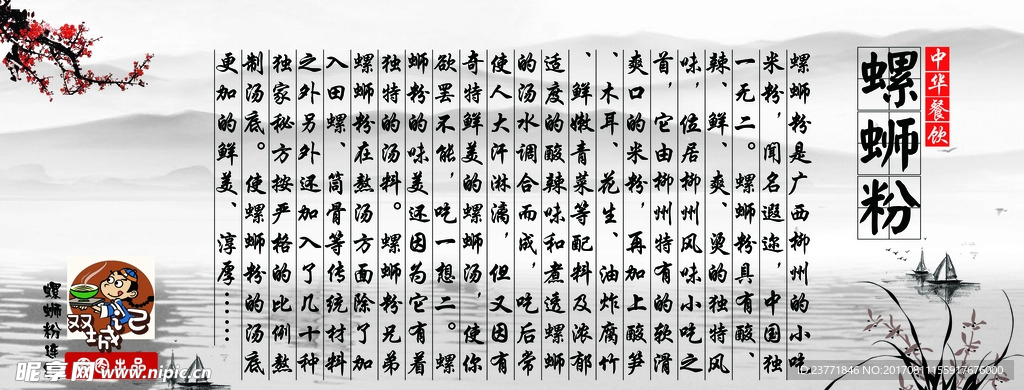 中华餐饮
螺蛳粉
螺蛳粉是广西柳州的小吃
米粉，闻名遐迩，中国独
一无二。螺蛳粉具有酸、
辣、鲜、爽、烫的独特风
味，位居柳州风味小吃之
首，它由柳州特有的软滑
爽口的米粉，再加上酸笋
、木耳、花生、油炸腐竹
、鲜嫩青菜等配料及浓郁
适度的酸辣味和煮透螺蛳
的汤水调合而成，吃后常
使人大汗淋漓，但又因有
奇特鲜美的螺蛳汤，使你
欲罢不能，吃一想二。螺
蛳粉的味美还因为它有着
独特的汤料。螺蛳粉兄弟
螺蛳粉在熬汤方面除了加
入田螺、筒骨等传统材料
之外另外还加入了几十种
独家秘方按严格的比例熬
制汤底。使螺蛳粉的汤底
更加的鲜美、淳厚……
螺蛳粉
出品
昵享网 www.nipic.cn
ID:23771846 NO:20170811155917676000